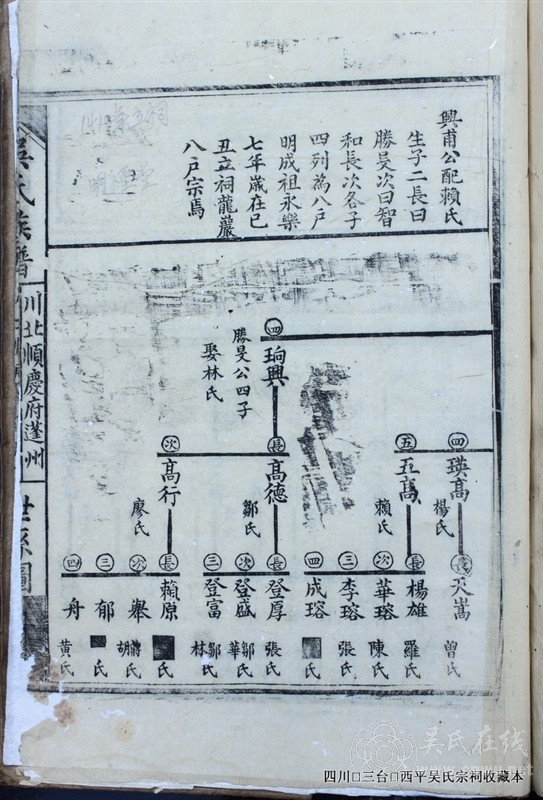 興甫公配賴氏
生子二長曰
勝旻次曰智
和長次各子
四列為八戶
明成祖永樂
七年歲在已
丑立祠龍巖
八戶宗焉
四
珦興
勝旻公四子
娶林氏
四
瑛高
楊氏
五
五高
賴氏
長
高德
鄒氏
次
高行
廖氏
長
天嵩
曾氏
長
楊雄
羅氏
次
華瑢
陳氏
三
李瑢
張氏
四
成瑢
氏
長
登厚
張氏
次
登盛
鄒氏
華氏
三
登富
鄒氏
林氏
長
賴原
氏
次
舉
胡氏
三
郁
氏
四
舟
黃氏
吳氏族譜
川北順慶府蓬州
世系圖
吳氏在线
四川□三台□西平吴氏宗祠收藏本